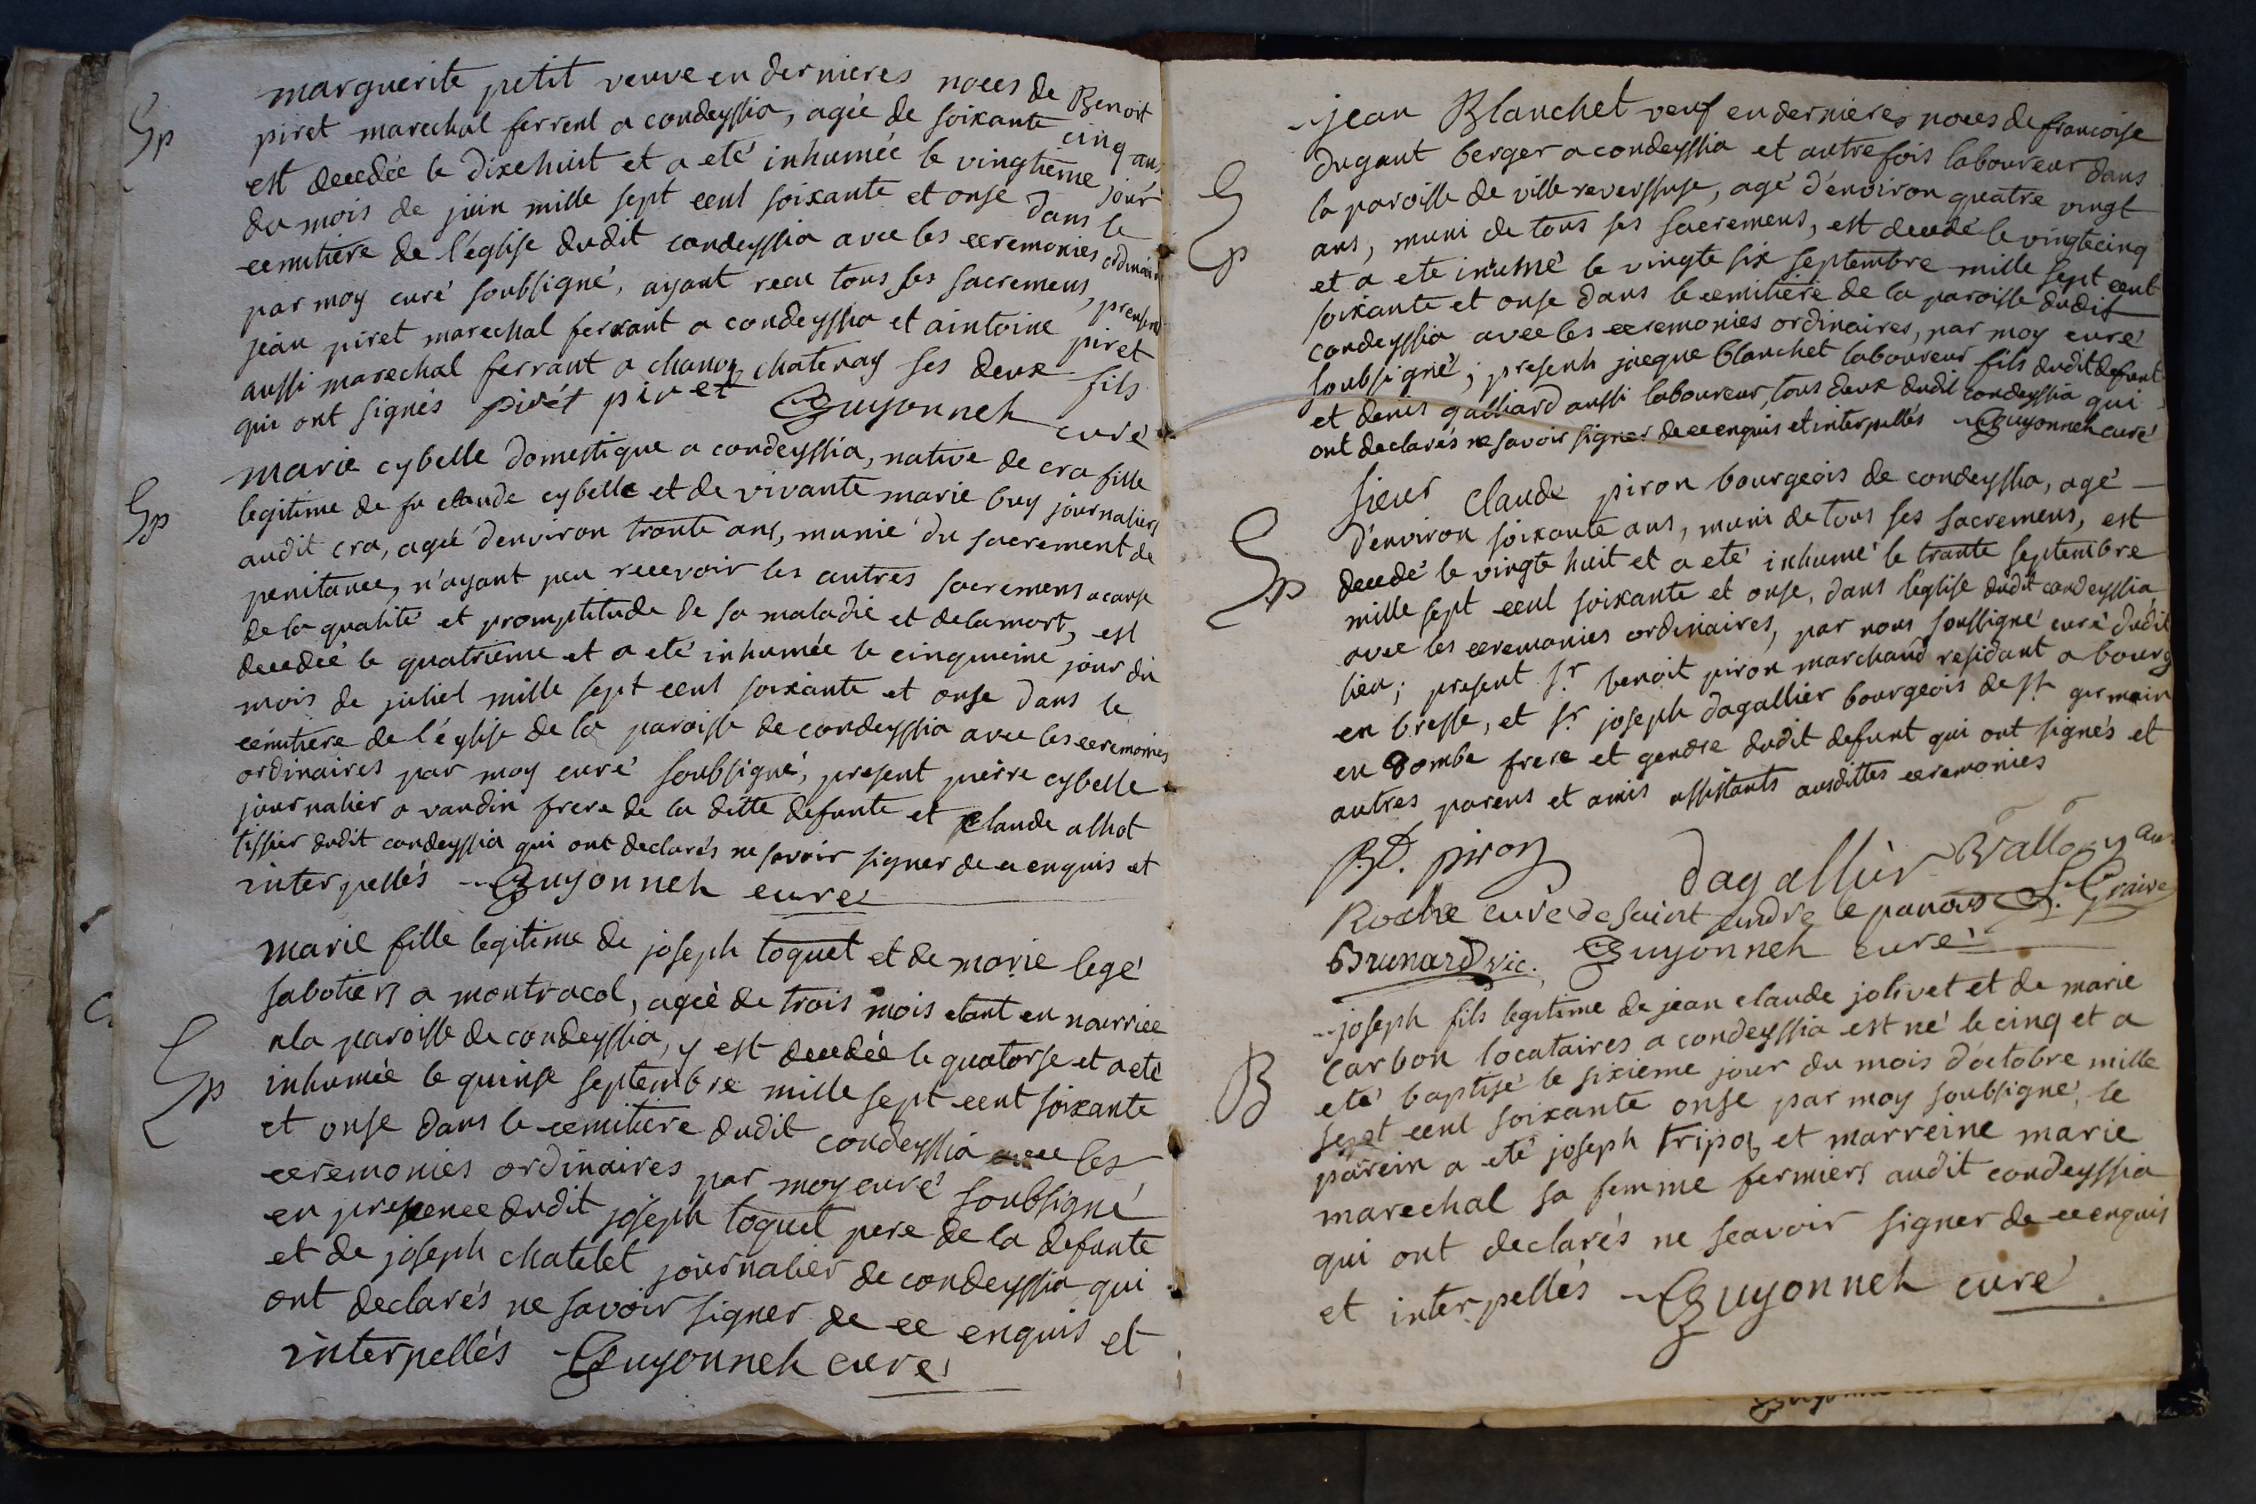 Sp
marguerite petit veuve en dernieres noces de Benoit
piret marechal ferrent a condeyssia, agée de soixante cinq ans
est decedée le dixehuit et a eté inhumée le vingtieme jour
du mois de juin mille sept cent soixante et onse dans le
cemitiere de l'église dudit condeyssia avec les ceremonies ordinaires
par moy curé soubsigné, ayant recu tous ses sacremens, presens
jean piret marechal ferrant a condeyssia et aintoine piret
aussi marechal ferrant a chatenay ses deux fils
qui ont signés pirét piret Guyonneh curé
Sp
marie cybelle domestique a condeyssia, native de cra fille
legitime de fu claude cybelle et de vivante marie buy journaliers
audit cra, agée d'environ trante ans, munie du sacrement de
penitance, n'ayant peu recevoir les autres sacremens a cause
de la qualité et promptitude de sa maladie et de la mort, est
decedée le quatrieme et a eté inhumée le cinquieme jour du
mois de juliet mille sept cent soixante et onse dans le
cemitiere de l'église de la paroisse de condeyssia avec les ceremonies
ordinaires par moy curé soubsigné, present pierre cybelle
journalier a vandin frere de la ditte defunte et claude alhot
tissier dudit condeyssia qui ont declarés ne savoir signer de ce enquis et
interpellés Guyonneh curé
Sp
marie fille legitime de joseph toquet et de marie legé
sabotiers a montracol, agée de trois mois etant en nourrice
a la paroisse de condeyssia, y est decedée le quatorse et a eté
inhumée le quinse septembre mille sept cent soixante
et onse dans le cemitiere dudit condeyssia avec les
ceremonies ordinaires par moy curé soubsigné
en presence dudit joseph toquet pere de la defunte
et de joseph chatelet journalier de condeyssia qui
ont declarés ne savoir signer de ce enquis et
interpellés Guyonneh curé
Sp
jean Blanchet veuf en dernieres noces de francoise
dugaut berger a condeyssia et autrefois laboureur dans
la paroisse de ville reverssuse, agé d'environ quatre vingt
ans, muni de tous ses sacremens, est decedé le vingtecinq
et a ete inumé le vingte six septembre mille sept cent
soixante et onse dans le cemitiere de la paroisse dudit
condeyssia avec les ceremonies ordinaires, par moy curé
soubsigné; presents jacque blanchet laboureur fils dudit defunt
et denis galliard aussi laboureur, tous deux dudit condeyssia qui
ont declarés ne savoir signer de ce enquis et interpellés Guyonneh curé
Sp
sieur claude piron bourgeois de condeyssia, agé
d'environ soixante ans, muni de tous ses sacremens, est
decedé le vingte huit et a eté inhumé le trante septembre
mille sept cent soixante et onse, dans l'église dudit condeyssia
avec les ceremonies ordinaires, par nous soussigné curé dudit
lieu; present sr. benoit piron marchand residant a bourg
en bresse, et sr joseph dagallier bourgeois de st germain
en dombe frere et gendre dudit defunt qui ont signés et
autres parens et amis assistants ausdittes ceremonies
B.D. piron dagallier
Roche curé de saint andré le panoux
Brunard vic. Guyonneh curé
B
joseph fils legitime de jean claude jolivet et de marie
carbon locataires a condeyssia est né le cinq et a
eté baptisé le sixieme jour du mois d'octobre mille
sept cent soixante onse par moy soubsigné, le
parein a eté joseph tripoz et marreine marie
marechal sa femme fermiers audit condeyssia
qui ont declarés ne scavoir signer de ce enquis
et interpellés Guyonneh curé